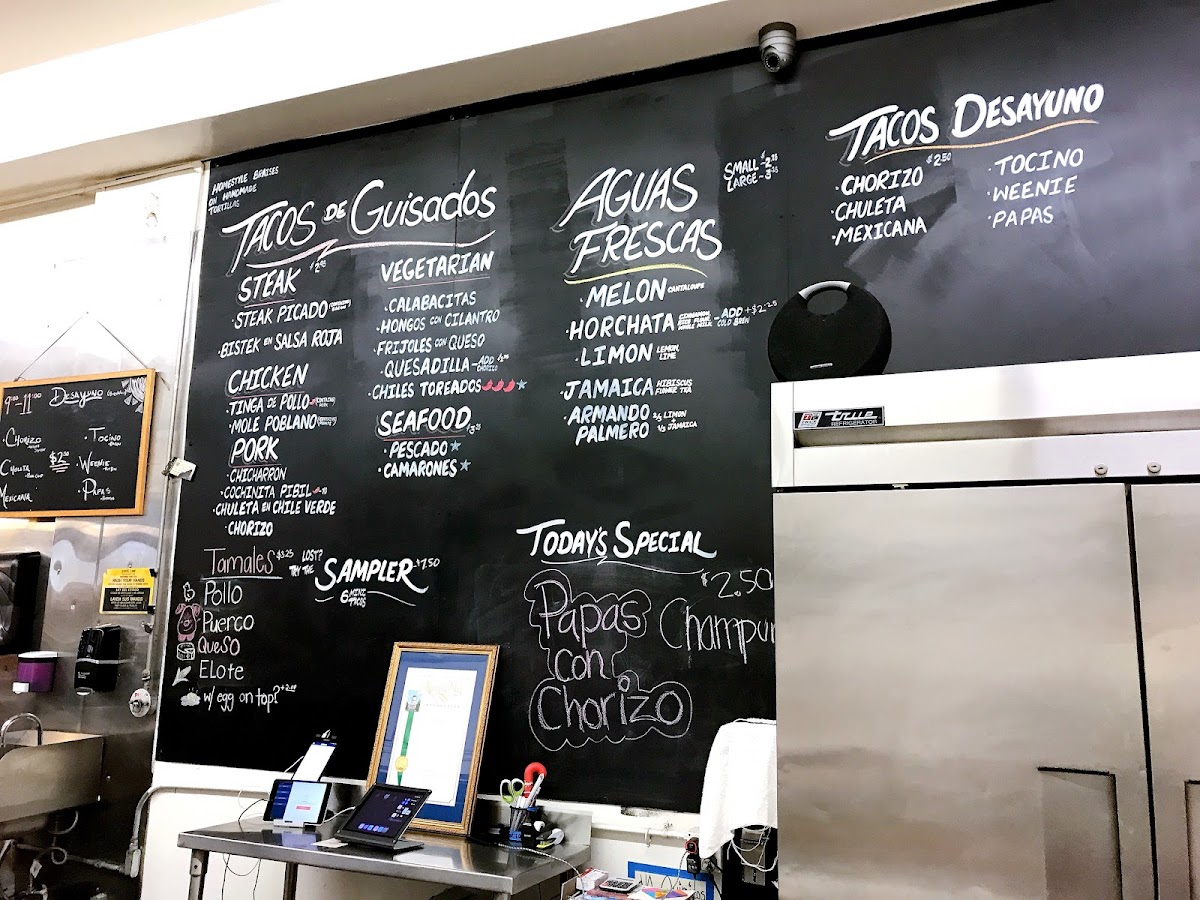 HOMESTYLE BRAISES
ON HANDMADE
TORTILLAS
TACOS DE GUISADOS
STEAK
· STEAK PICADO
· BISTEK EN SALSA ROJA
CHICKEN
· TINGA DE POLLO
· MOLE POBLANO
PORK
· CHICHARRON
· COCHINITA PIBIL
· CHULETA EN CHILE VERDE
· CHORIZO
VEGETARIAN
· CALABACITAS
· HONGOS CON CILANTRO
· FRIJOLES CON QUESO
· QUESADILLA - ADD CHORIZO
· CHILES TOREADOS
SEAFOOD
· PESCADO
· CAMARONES
Tamales $3.25
Pollo
Puerco
Queso
Elote
w/ egg on top? +2.00
LOST?
TRY THE SAMPLER $7.50
6 MINI
TACOS
AGUAS
FRESCAS
SMALL -
LARGE -
· MELON CANTALOUPE
· HORCHATA CINNAMON, RICE FLOUR, WHOLE MILK - ADD +$2.25 COLD BREW
· LIMON LEMON, LIME
· JAMAICA HIBISCUS FLOWER TEA
· ARMANDO
PALMERO
LIMON
JAMAICA
TODAY'S SPECIAL
Papas
con
Chorizo
$2.50
Champur
TACOS DESAYUNO
$2.50
· CHORIZO
· CHULETA
· MEXICANA
· TOCINO
· WEENIE
· PAPAS
7:00-11:00 DESAYUNO
· CHORIZO
CHULETA
MEXICANA
$2.50
· TOCINO
· WEENIE
· PAPAS
true
REFRIGERATOR